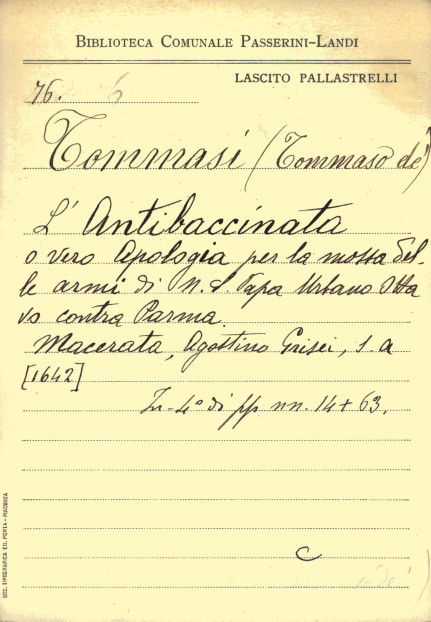 BIBLIOTECA COMUNALE PASSERINI-LANDI
LASCITO PALLASTRELLI
76. 6
Tommasi (Tommaso de')
L' Antibaccinata
o vero Apologia per la mossa del-
le armi di N. S. Papa Urbano Otta
vo contra Parma.
Macerata, Agostino Grisei, s. a
[1642]
In-4° di pp nn. 14 + 63.
C
SOC. TIPOGRAFICA ED. PORTA - PIACENZA